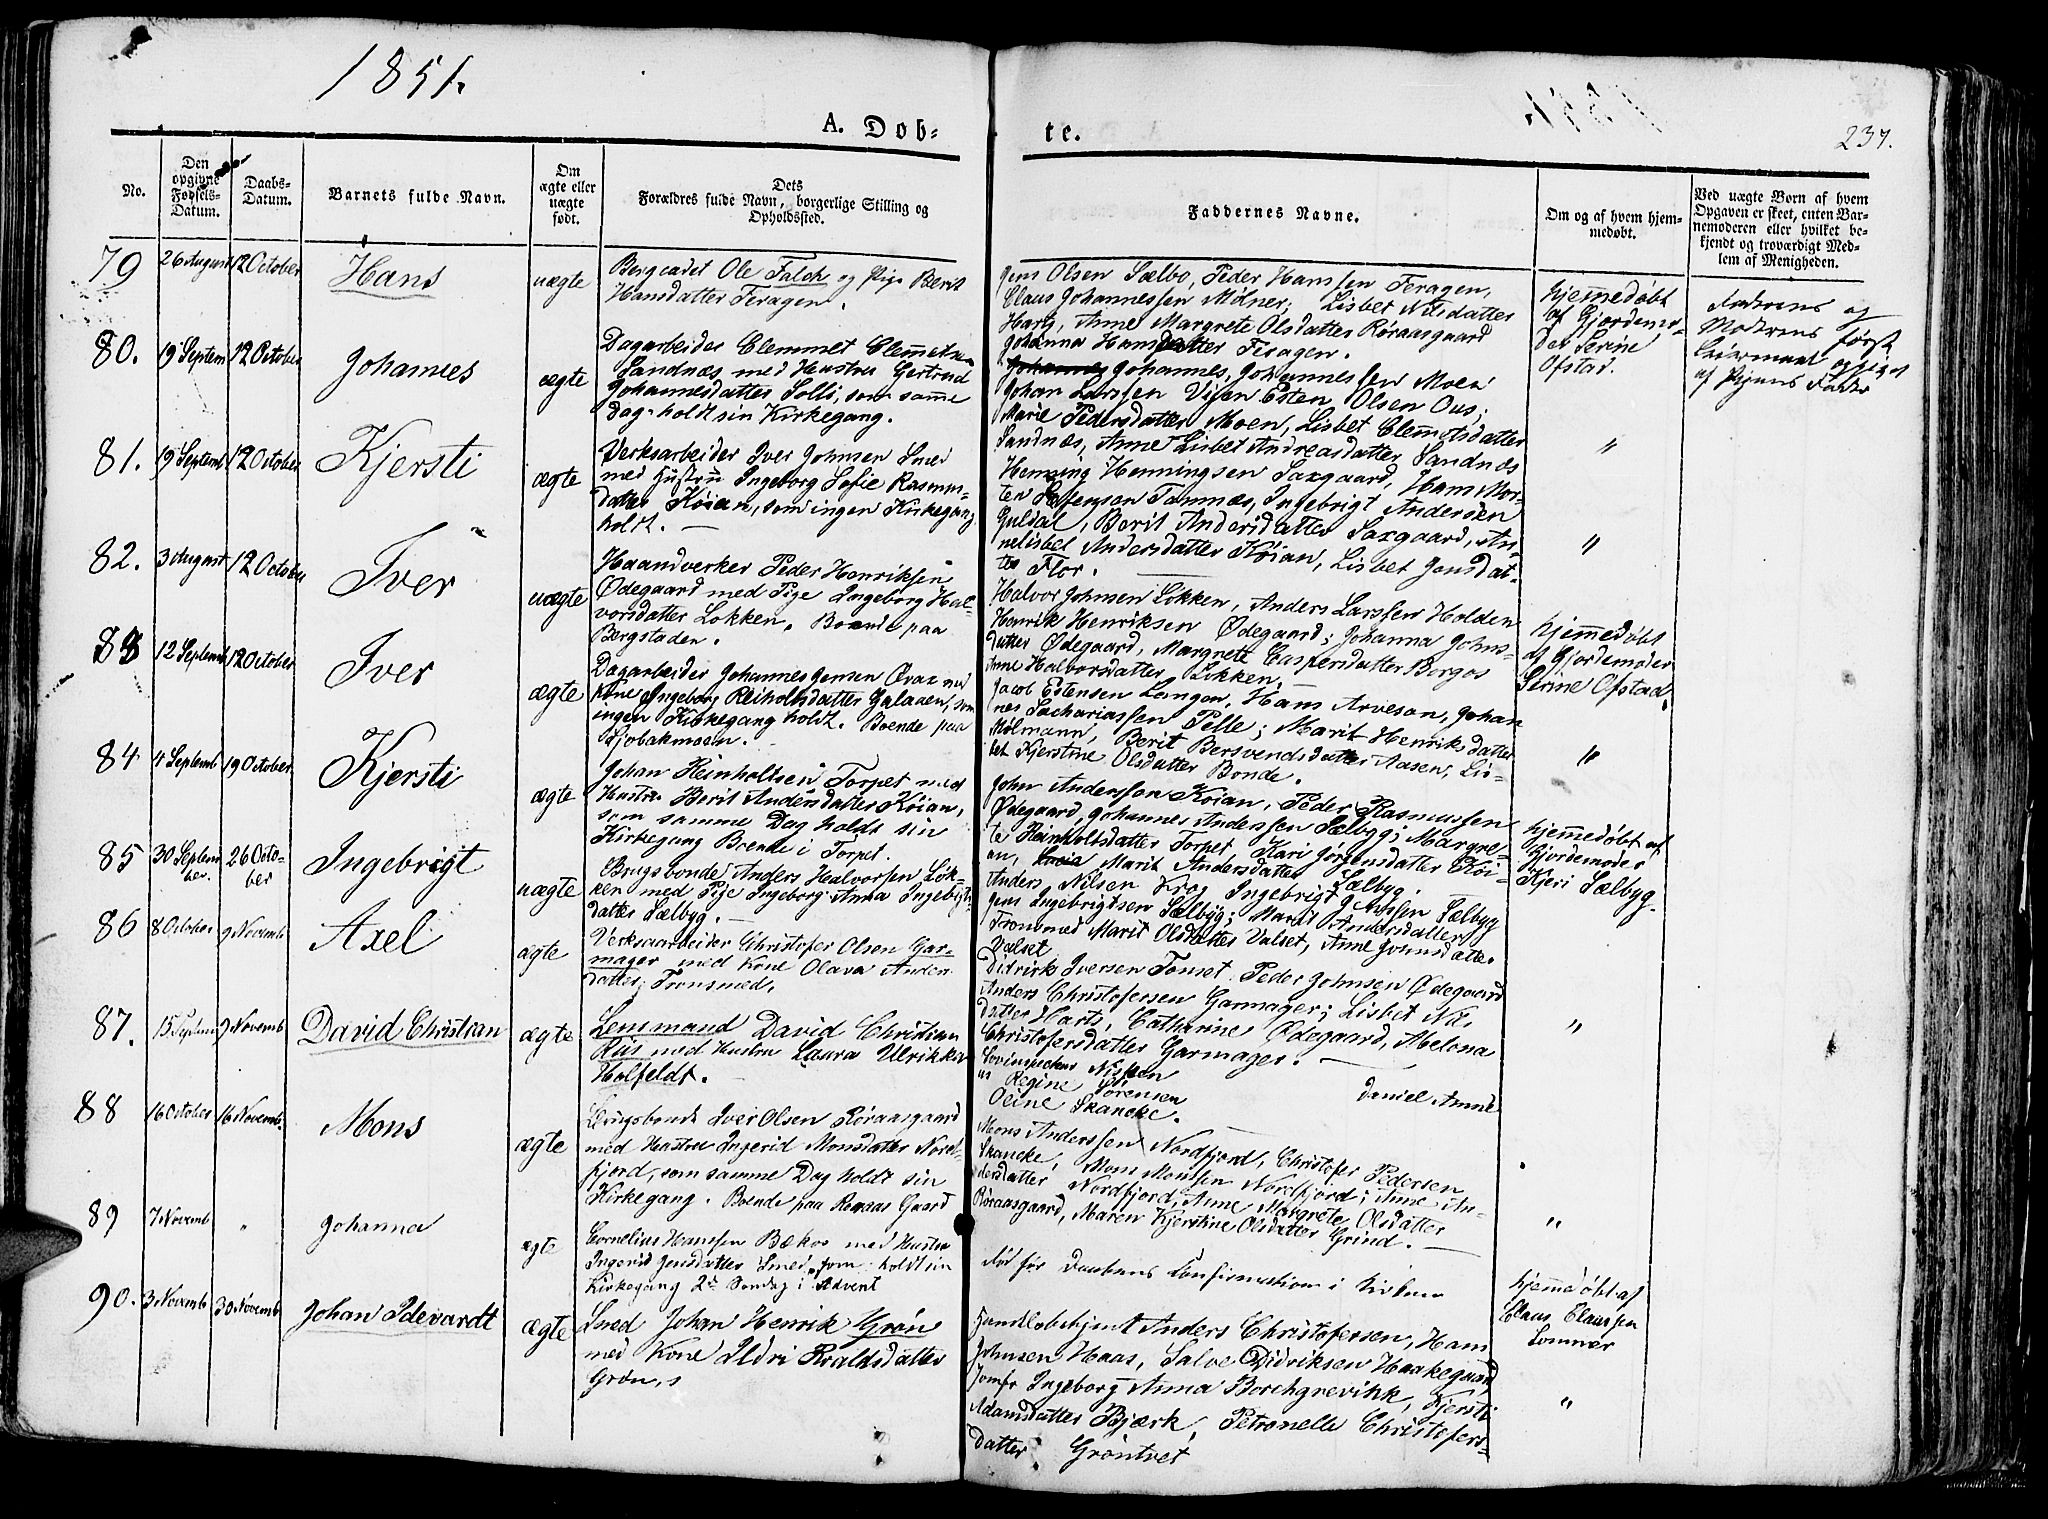 1851.
A. Døb-
te.
237.
No.
Den opgivne Fødsels-Datum.
Daabs-Datum.
Barnets fulde Navn.
Om ægte eller uægte født.
Dets Forældres fulde Navn, borgerlige Stilling og Opholdssted.
Faddernes Navne.
Om og af hvem hjem-medøbt.
Ved uægte Børn af hvem Opgaven er skeet, enten Bar-nemoderen eller hvilket be-kjendt og troværdigt Med-lem af Menigheden.
79
26 August
12 October
Hans
uægte
Bergcadet Ole Falck og Pige Berit
Hansdatter Feragen.
Jens Olsen Sælbo, Peder Hanssen Feragen,
Claus Johannessen Mølner; Lisbet Nilsdatter
Harts, Anne Margrete Olsdatter Røraasgaard
Johanna Hansdatter Feragen.
hjemmedøbt
af Gjordemo-
der Serine
Ofstad.
Faderens og
Moderens først
Leiermaal opgivet
af Pigens Fader
80.
19 Septem
12 October
Johannes
ægte
Dagarbeider Clemmet Clemmetsen
Sandnæs med Hustru Gertrud
Johannesdatter Solli, som samme
Dag holdt sin Kirkegang.
Johannes Johannessen Moen
Johan Larssen Viken Esten Olsen Ous;
Marie Pedersdatter Moen, Lisbet Clemmetsdatter
Sandnæs, Anne Lisbet Andreasdatter Sandnæs
"
81.
19 Septemb
12 October
Kjersti
ægte
Verksarbeider Iver Johnsen Smed
med Hustru Ingeborg Sofie Rasmus-
datter Køian, som ingen Kirkegang
holdt.
Henning Henningsen Saxgaard, Hans Mor-
tensen Tamnæs, Ingebrigt Andersen
Guldal, Berit Andersdatter Saxgaard, An-
nelisbet Andersdatter Køian, Lisbet Jensdat-
ter Flor.
"
82.
3 August
12 October
Iver
uægte
Haandverker Peder Henriksen
Ødegaard med Pige Ingeborg Hal-
vorsdatter Løkken. Boende paa
Bergstaden.
Halvor Johnsen Løkken, Anders Larssen Holden
Henrik Henriksen Ødegaard; Johanna Johns-
datter Ødegaard, Margrete Caspersdatter Borgos
Anne Halvorsdatter Løkken.
hjemmedøbt
af Gjordemoder
Serine Ofstad.
83
12 Septemb
12 October
Iver
ægte
Dagarbeider Johannes Jensen Øvax med
Kone Ingeborg Reiholtsdatter Galaaen, som
ingen Kirkegang holdt. Boende paa
Gjøsbakmoen.
Jacob Estensen Langen, Hans Arvesen, Johan
nes Sachariassen Pelle; Marit Henriksdatter
Mølmann, Berit Bersvendsdatter Aasen, Lis-
bet Kjerstine Olsdatter Bonde.
"
84
4 Septemb
19 October
Kjersti
ægte
Johan Reinholtsen Torpet med
Hustru Berit Andersdatter Køian,
som samme Dag holdt sin
Kirkegang Boende i Torpet.
John Anderssen Køian, Peder Rasmussen
Ødegaard, Johannes Anderssen Sælbyg; Margre-
te Reinholtsdatter Torpet Kari Jørgensdatter Køi-
an, Marit Andersdatter Sælbyg.
85
30 Septem
ber.
26 Octo-
ber
Ingebrigt
uægte
Brugsbonde Anders Halvorsen Løk-
ken med Pige Ingeborg Anna Ingebrigts-
datter Sælbyg.
Anders Nilsen Krog Ingebrigt Jenssen Sælbyg
Jens Ingebrigtsen Sælbyg; Marit Andersdatter
Tronsmed Marit Olsdatter Valset, Anne Johnsdatter
Valset
hjemmedøbt af
Gjordemoder
Kjeri Sælbyg.
86
8 October
9 Novemb
Axel
ægte
Verksarbeider Christofer Olsen Gar-
mager med Kone Olava Anders
datter Tronsmed.
Didrik Iversen Tomset Peder Johnsen Ødegaard
Anders Christofersen Garmager; Lisbet Nils
datter Harts, Catharine Ødegaard, Abelona
Christofersdatter Garmager.
"
87.
15 Septem
9 Novemb
David Christian
ægte
Lensmand David Christian
Riis med Hustru Laura Ulrikke
Holfeldt.
Nissen
Regine Sørensen
Oline Skancke.
Daniel Anne
88
16 October
16 Novemb.
Mons
ægte
Brugsbonde Iver Olsen Røraasgaard
med Hustru Ingerid Monsdatter Nord-
fjord, som samme Dag holdt sin
Kirkegang. Boende paa Røraas Gaard
Mons Anderssen Nordfjord, Christofer Pedersen
Skancke, Mons Monsen Nordfjord; Anne An-
dersdatter Nordfjord, Anne Margrete Olsdatter
Røraasgaard, Maren Kjerstine Olsdatter Grind.
"
89
7 Novemb
"
Johanna
ægte
Cornelius Hanssen Bækos med Hustru
Ingerid Jensdatter Smed, som holdt sin
Kirkegang 2den Søndag i Advent
Død før Daabens Confirmation i Kirken
hjemmedøbt af
Claus Claussen
Lommer
90.
3 Novemb
30 Novemb
Johan Idevardt
ægte
Smed Johan Henrik Grøn
med Kone Ildri Roaldsdatter
Grøn,
Anders Christofersen, Hans
Johnsen Haas, Salve Didriksen Haakegaard
Jomfr Ingeborg Anna Borchgrevikk, Kjersti
Adamsdatter Bjærk, Petronelle Christofers-
datter Grøntvet
"